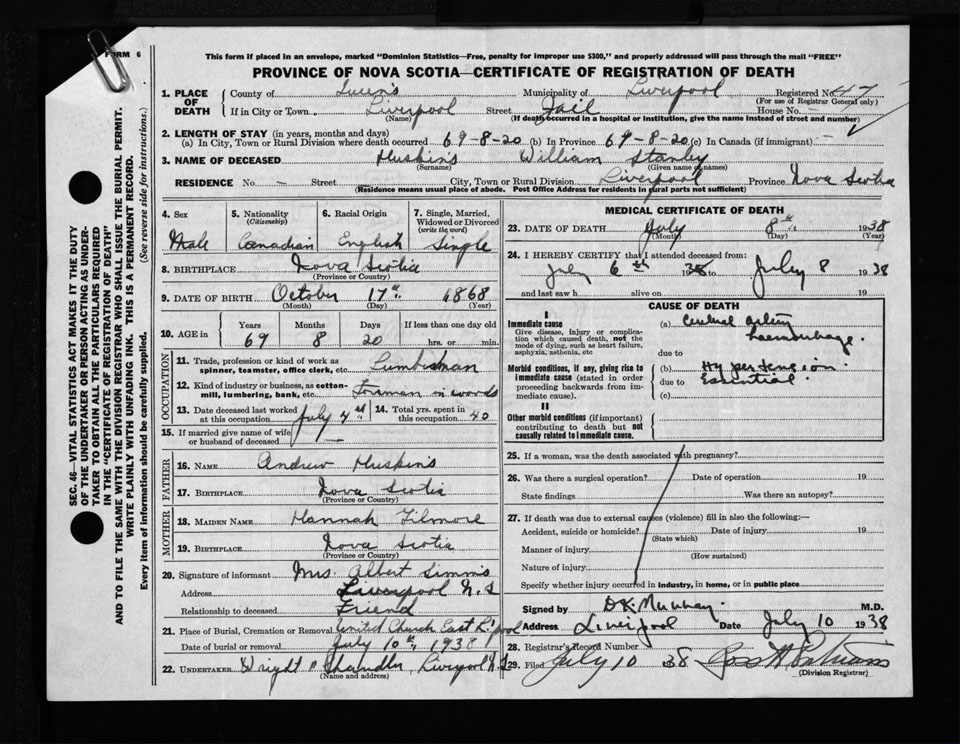 FORM 6
This form if placed in an envelope, marked "Dominion Statistics—Free, penalty for improper use $300," and properly addressed will pass through the mail "FREE"
PROVINCE OF NOVA SCOTIA—CERTIFICATE OF REGISTRATION OF DEATH
1. PLACE OF DEATH County of Queens Municipality of Liverpool Registered No. 47
(For use of Registrar General only)
If in City or Town Liverpool Street Jail House No. —
(Name) (If death occurred in a hospital or institution, give the name instead of street and number)
2. LENGTH OF STAY (in years, months and days)
(a) In City, Town or Rural Division where death occurred 69-8-20 (b) In Province 69-8-20 (c) In Canada (if immigrant) —
3. NAME OF DECEASED Huskins William Stanley
(Surname) (Given name or names)
RESIDENCE No. — Street — City, Town or Rural Division Liverpool Province Nova Scotia
(Residence means usual place of abode. Post Office Address for residents in rural parts not sufficient)
4. Sex Male
5. Nationality (Citizenship) Canadian
6. Racial Origin English
7. Single, Married, Widowed or Divorced (write the word) Single
8. BIRTHPLACE Nova Scotia
(Province or Country)
9. DATE OF BIRTH October 17th 1868
(Month) (Day) (Year)
10. AGE in Years Months Days If less than one day old
69 8 20 hrs. or min.
OCCUPATION
11. Trade, profession or kind of work as spinner, teamster, office clerk, etc. Lumberman
12. Kind of industry or business, as cotton-mill, lumbering, bank, etc. Forman in woods
13. Date deceased last worked at this occupation July 4th 14. Total yrs. spent in this occupation 40
15. If married give name of wife or husband of deceased —
FATHER
16. NAME Andrew Huskins
17. BIRTHPLACE Nova Scotia
(Province or Country)
MOTHER
18. MAIDEN NAME Hannah Filmore
19. BIRTHPLACE Nova Scotia
(Province or Country)
20. Signature of informant Mrs. Albert Simms
Address Liverpool N.S
Relationship to deceased Friend
21. Place of Burial, Cremation or Removal United Church East L'pool
Date of burial or removal July 10th, 1938
22. UNDERTAKER Wright Chandler, Liverpool N.S
(Name and address)
MEDICAL CERTIFICATE OF DEATH
23. DATE OF DEATH July 8th 1938
(Month) (Day) (Year)
24. I HEREBY CERTIFY that I attended deceased from:
July 6th 1938 to July 8 1938
and last saw h alive on 19
CAUSE OF DEATH
I
Immediate cause
Give disease, injury or complication which caused death, not the mode of dying, such as heart failure, asphyxia, asthenia, etc
(a) Cerebral artery haemorrhage.
due to
Morbid conditions, if any, giving rise to immediate cause (stated in order proceeding backwards from immediate cause).
(b) Hypertension.
due to Essential.
(c)
II
Other morbid conditions (if important) contributing to death but not causally related to immediate cause.
25. If a woman, was the death associated with pregnancy?
26. Was there a surgical operation? Date of operation 19
State findings Was there an autopsy?
27. If death was due to external causes (violence) fill in also the following:—
Accident, suicide or homicide? Date of injury 19
(State which)
Manner of injury
(How sustained)
Nature of injury
Specify whether injury occurred in industry, in home, or in public place
Signed by D.K. Murray. M.D.
Address Liverpool Date July 10 1938
28. Registrar's Record Number
29. Filed July 10 38
(Division Registrar)
SEC. 46—VITAL STATISTICS ACT MAKES IT THE DUTY
OF THE UNDERTAKER OR PERSON ACTING AS UNDER-
TAKER TO OBTAIN ALL THE PARTICULARS REQUIRED
IN THE "CERTIFICATE OF REGISTRATION OF DEATH"
AND TO FILE THE SAME WITH THE DIVISION REGISTRAR WHO SHALL ISSUE THE BURIAL PERMIT.
WRITE PLAINLY WITH UNFADING INK. THIS IS A PERMANENT RECORD.
Every item of information should be carefully supplied. (See reverse side for instructions.)